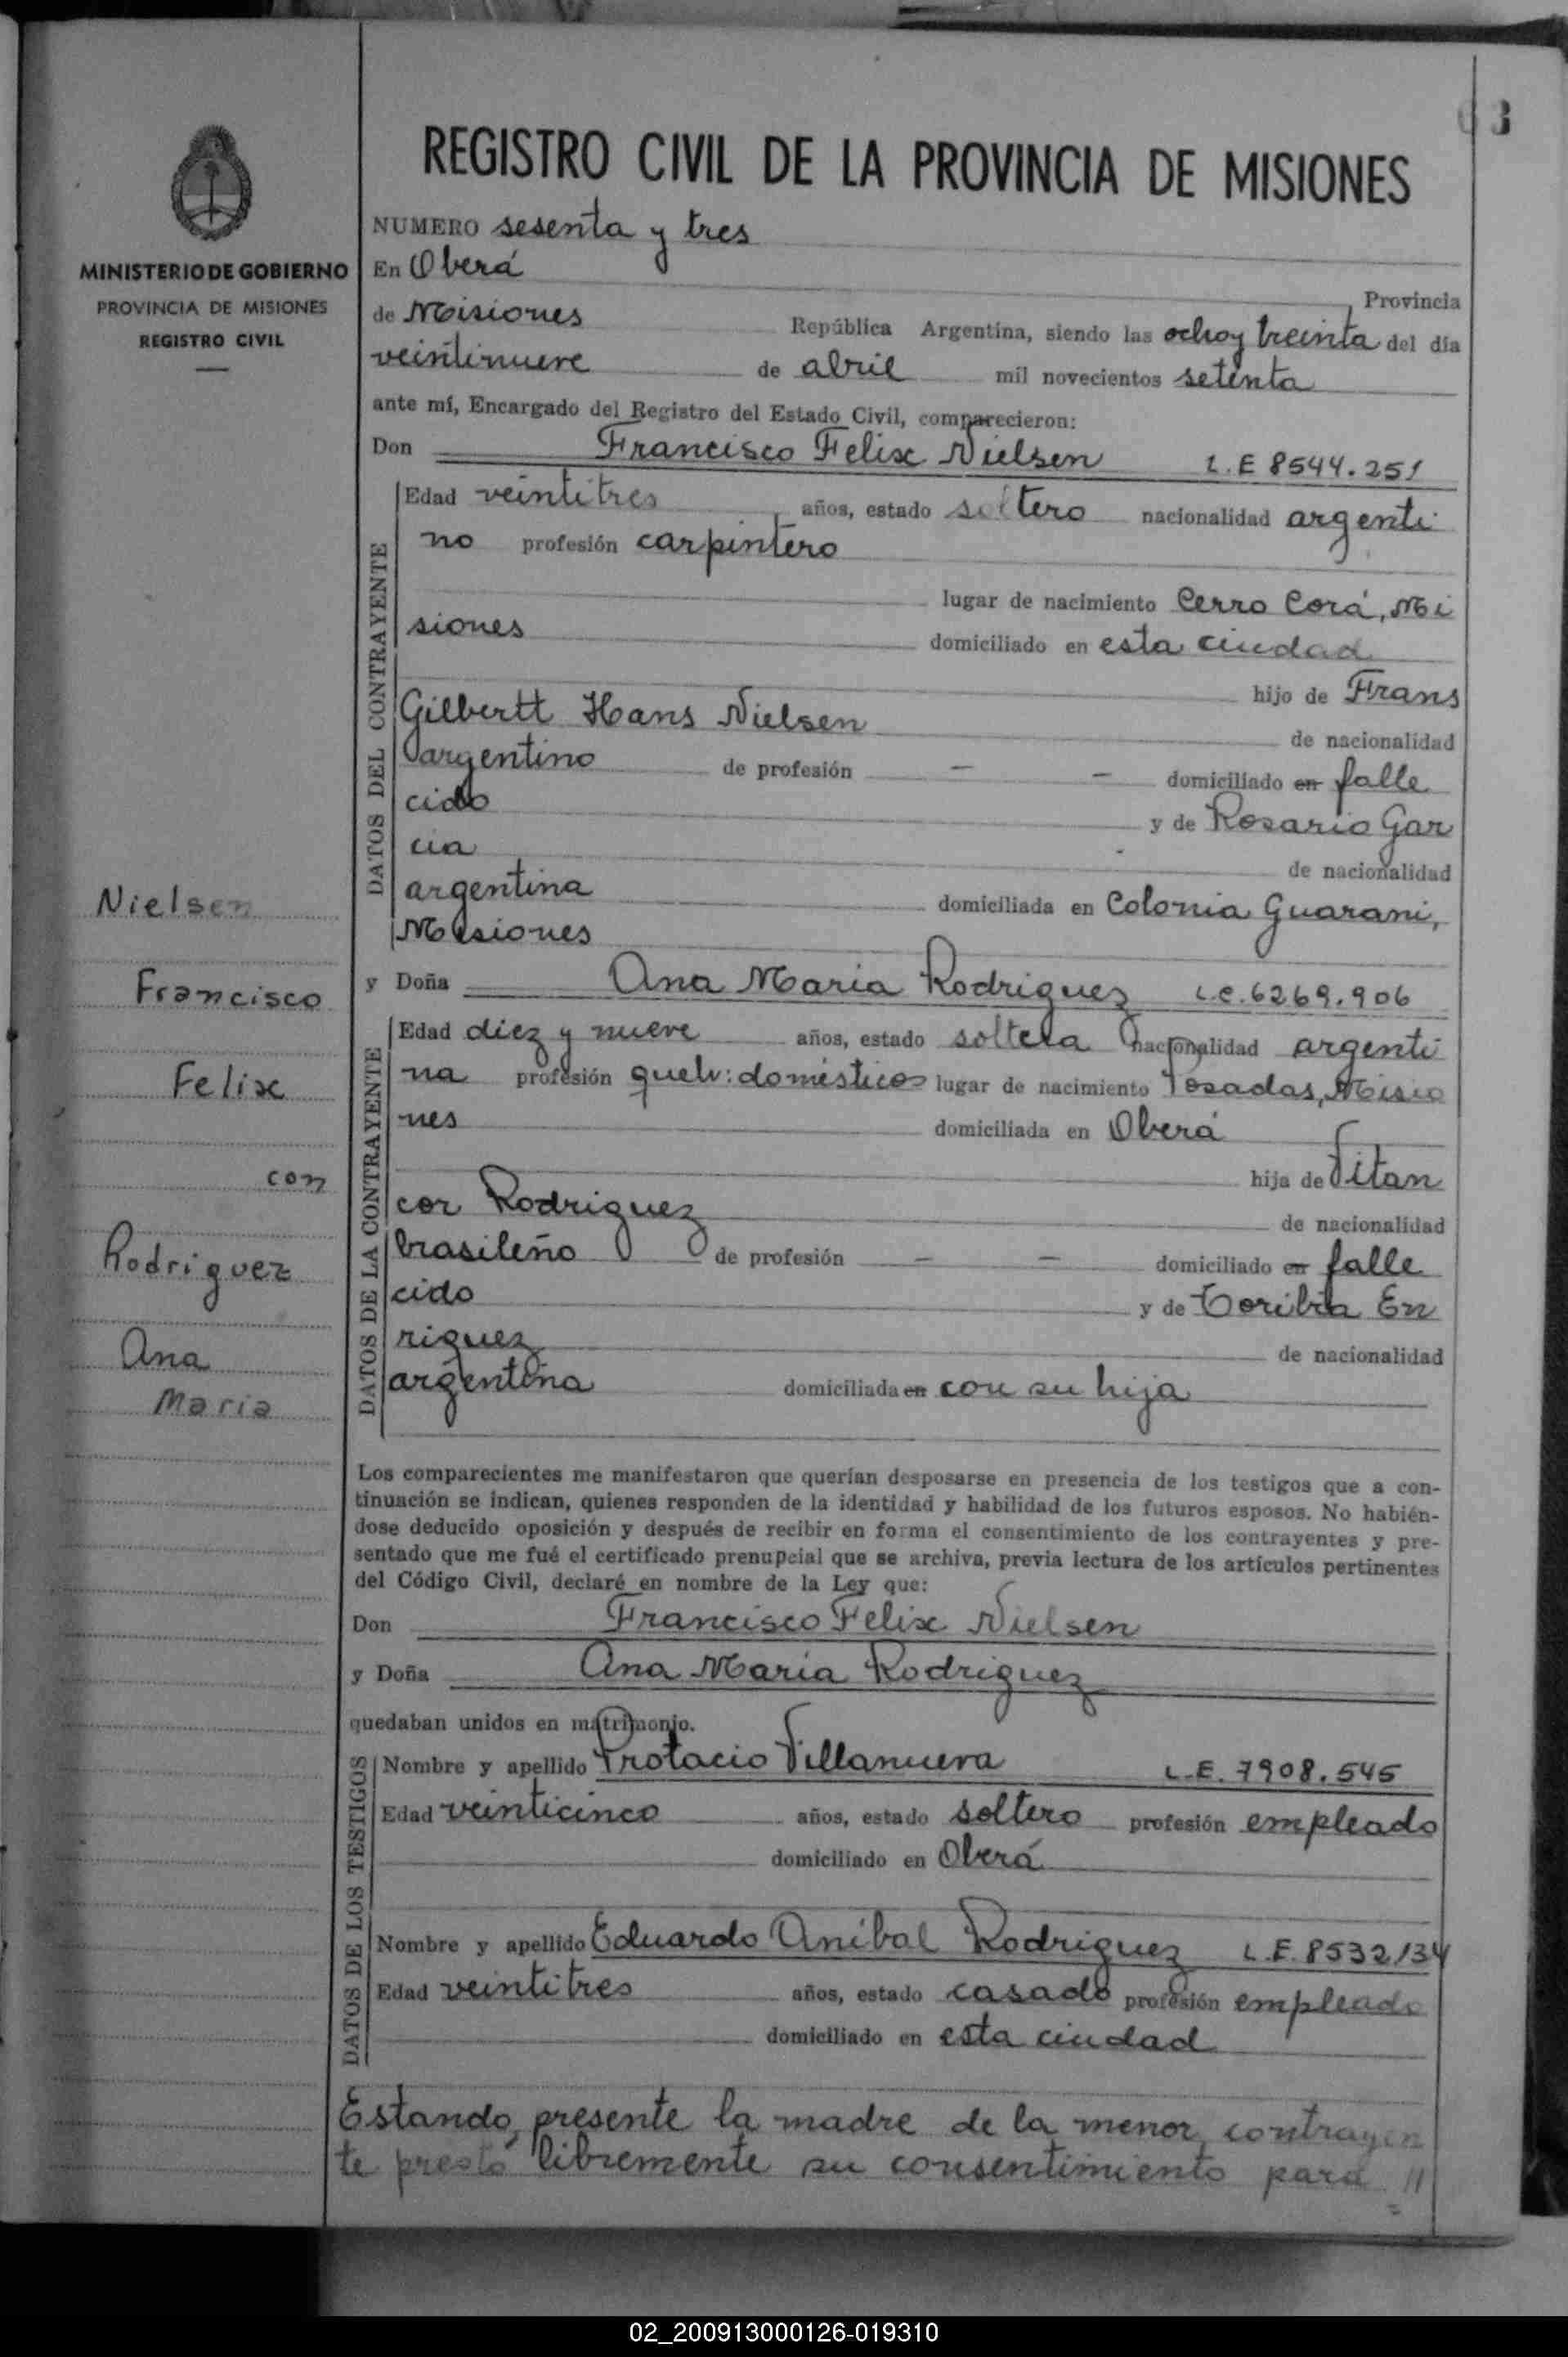 63
REGISTRO CIVIL DE LA PROVINCIA DE MISIONES
MINISTERIO DE GOBIERNO
PROVINCIA DE MISIONES
REGISTRO CIVIL
NUMERO sesenta y tres
En Oberá, Provincia
de Misiones República Argentina, siendo las ocho y treinta del día
veintinueve de abril mil novecientos setenta
ante mí, Encargado del Registro del Estado Civil, comparecieron:
Don Francisco Felix Nielsen L.E 8544.251
DATOS DEL CONTRAYENTE
Edad veintitres años, estado soltero nacionalidad argenti
no profesión carpintero
lugar de nacimiento Cerro Corá, Mi
siones domiciliado en esta ciudad
hijo de Frans
Gilbertt Hans Nielsen de nacionalidad
argentino de profesión - - domiciliado en falle
cido y de Rosario Gar
cia de nacionalidad
argentina domiciliada en Colonia Guarani,
Misiones
y Doña Ana Maria Rodriguez L.C. 6269.906
DATOS DE LA CONTRAYENTE
Edad diez y nueve años, estado soltera nacionalidad argenti
na profesión queh: domésticos lugar de nacimiento Posadas, Misio
nes domiciliada en Oberá
hija de Vitan
cor Rodriguez de nacionalidad
brasileño de profesión - - domiciliado en falle
cido y de Toribia En
riquez de nacionalidad
argentina domiciliada en con su hija
Los comparecientes me manifestaron que querían desposarse en presencia de los testigos que a con-
tinuación se indican, quienes responden de la identidad y habilidad de los futuros esposos. No habién-
dose deducido oposición y después de recibir en forma el consentimiento de los contrayentes y pre-
sentado que me fué el certificado prenupcial que se archiva, previa lectura de los artículos pertinentes
del Código Civil, declaré en nombre de la Ley que:
Don Francisco Felix Nielsen
y Doña Ana Maria Rodriguez
quedaban unidos en matrimonio.
DATOS DE LOS TESTIGOS
Nombre y apellido Protacio Villanueva L.E. 7908.545
Edad veinticinco años, estado soltero profesión empleado
domiciliado en Oberá
Nombre y apellido Eduardo Aníbal Rodriguez L.E. 8532134
Edad veintitres años, estado casado profesión empleado
domiciliado en esta ciudad
Estando presente la madre de la menor contrayen
te prestó libremente su consentimiento para //
Nielsen
Francisco
Felix
con
Rodriguez
Ana
Maria
02_200913000126-019310